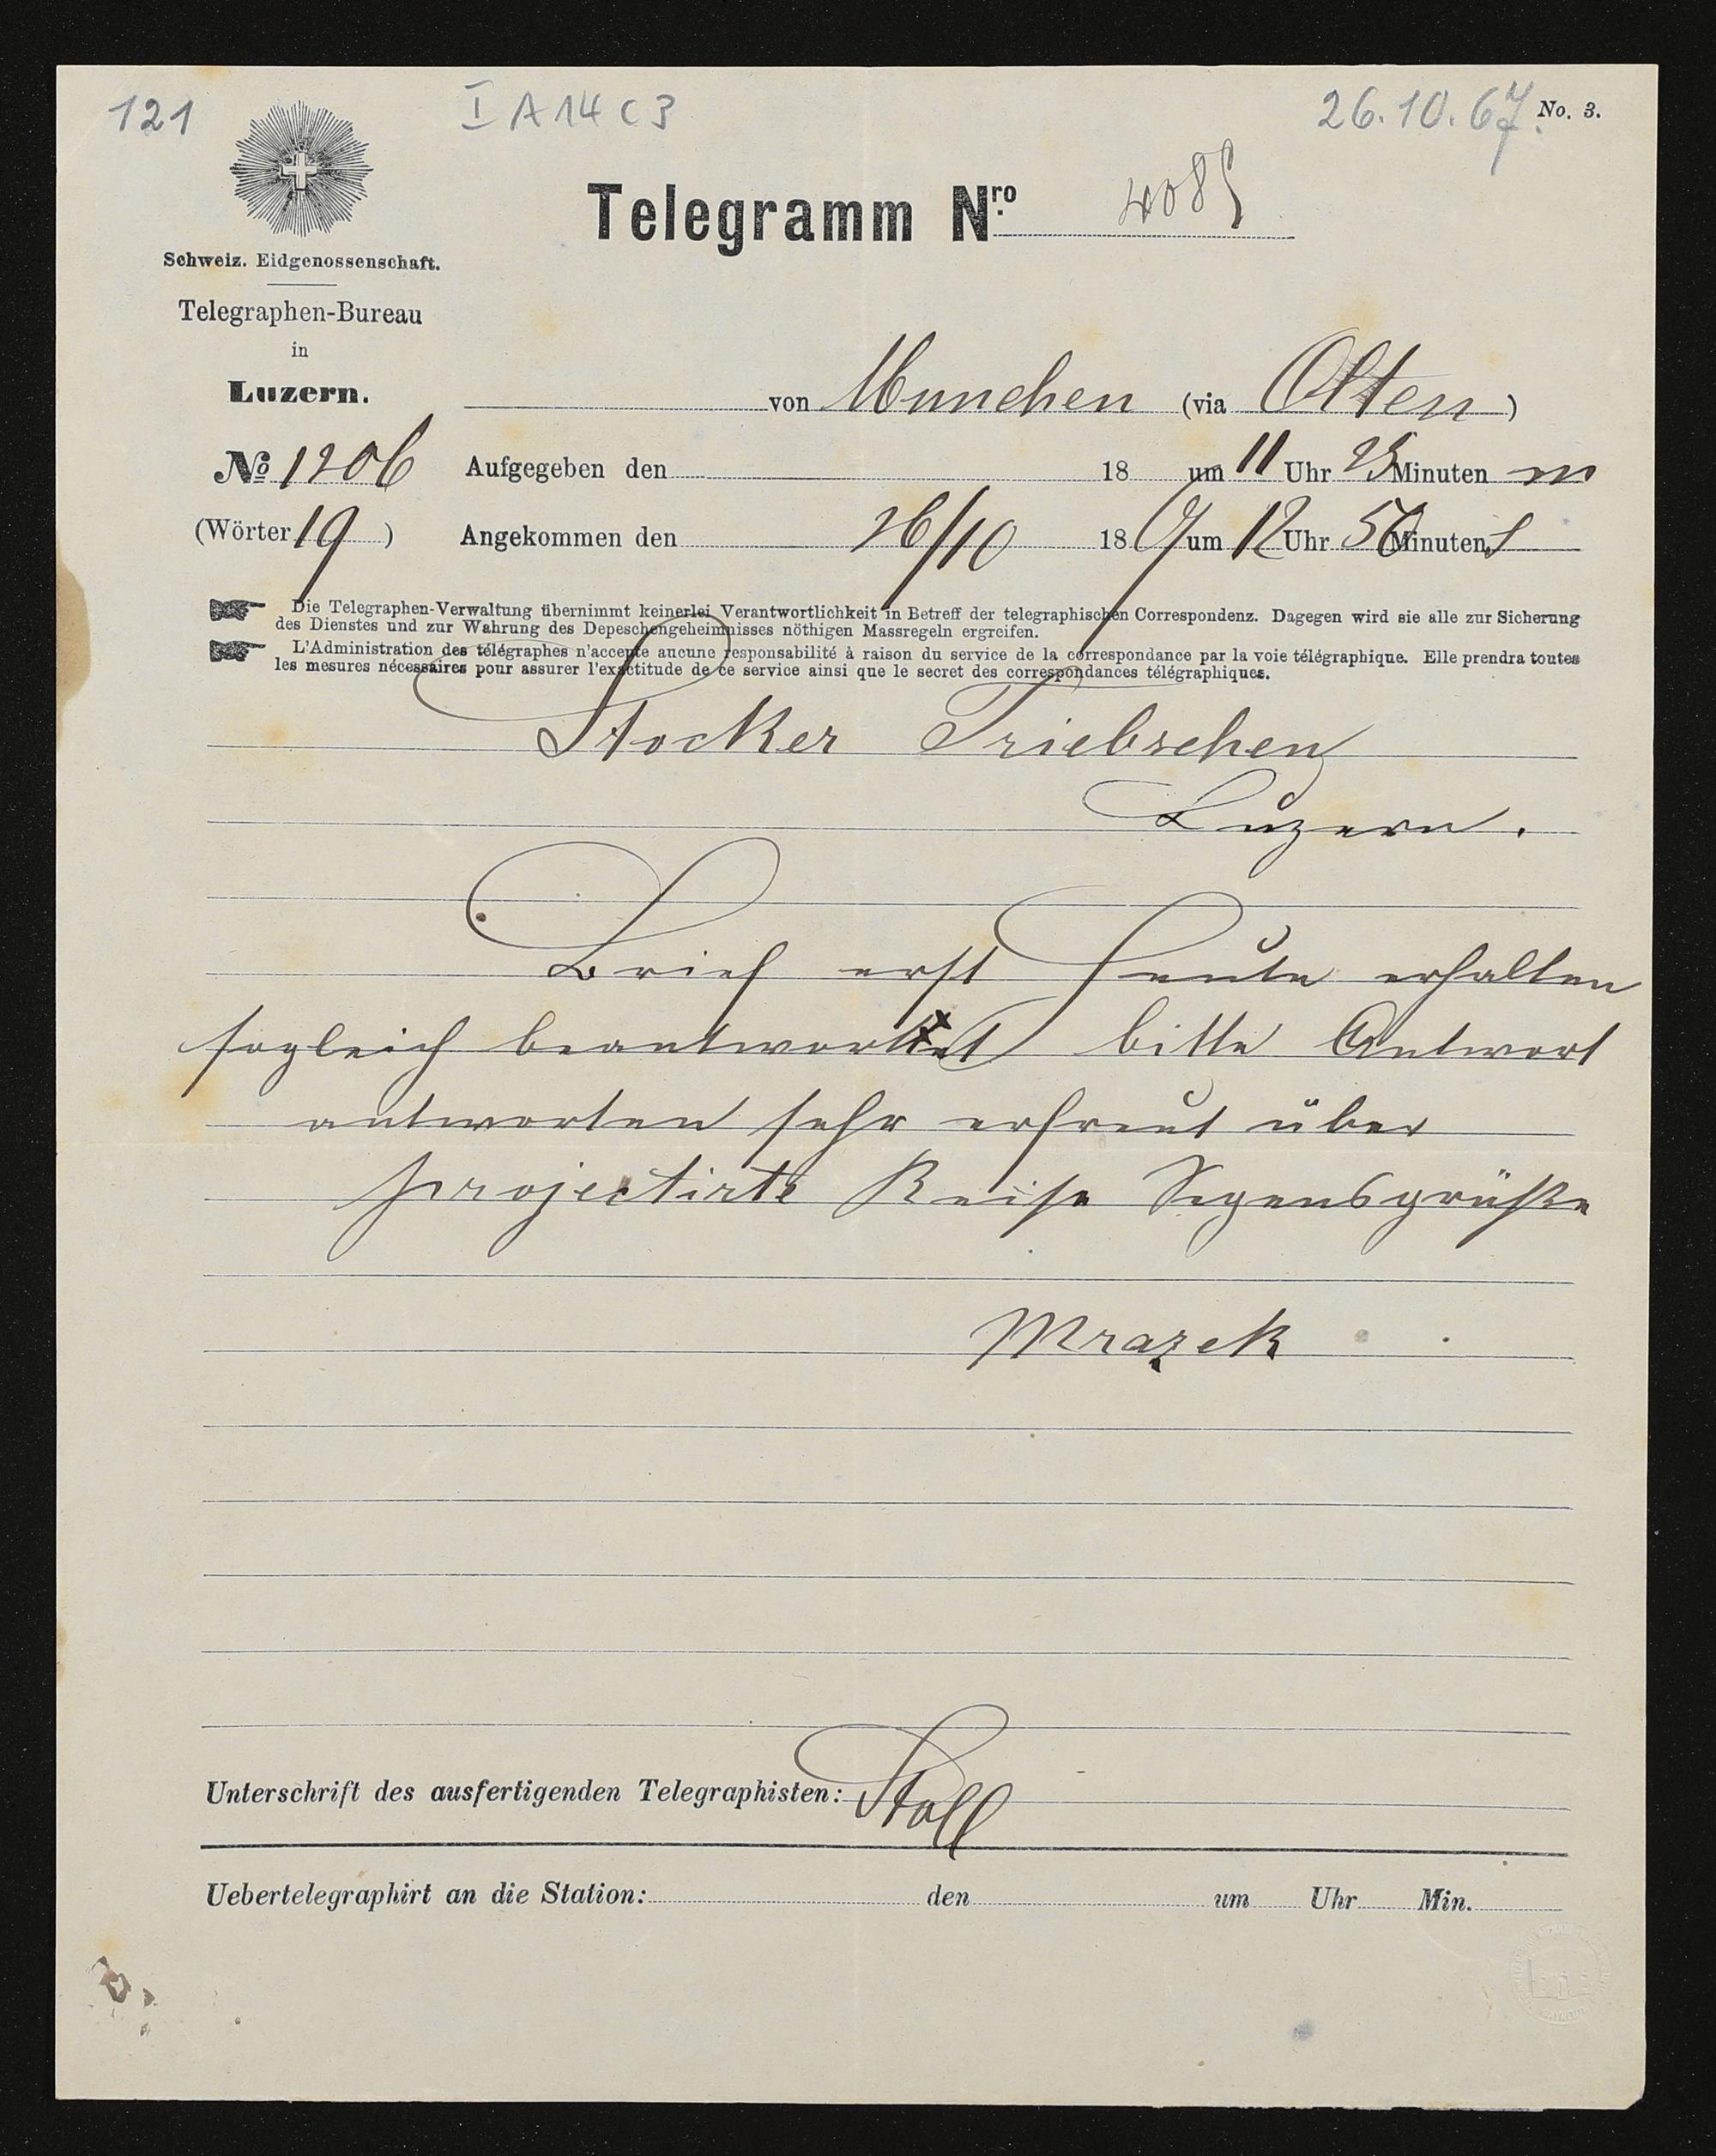 121
I A 14 C 3
26.10.67.
No. 3.
Telegramm Nro. 4085
Schweiz. Eidgenossenschaft.
Telegraphen-Bureau
in
Luzern.
von Munchen (via Olten)
No 1206 Aufgegeben den 18 um 11 Uhr 25 Minuten m
(Wörter 19) Angekommen den 26/10 187 um 12 Uhr 50 Minuten S
Die Telegraphen-Verwaltung übernimmt keinerlei Verantwortlichkeit in Betreff der telegraphischen Correspondenz. Dagegen wird sie alle zur Sicherung
des Dienstes und zur Wahrung des Depeschengeheimnisses nöthigen Massregeln ergreifen.
L'Administration des télégraphes n'accepte aucune responsabilité à raison du service de la correspondance par la voie télégraphique. Elle prendra toutes
les mesures nécessaires pour assurer l'exactitude de ce service ainsi que le secret des correspondances télégraphiques.
Stocker Triebschen
Luzern.
Brief erst heute erhalten
sogleich beantwortet bitte Antwort
antworten sehr erfreut über
projectirte Reise Segensgrüße
Mrazek
Unterschrift des ausfertigenden Telegraphisten: Stoll
Uebertelegraphirt an die Station: den um Uhr Min.